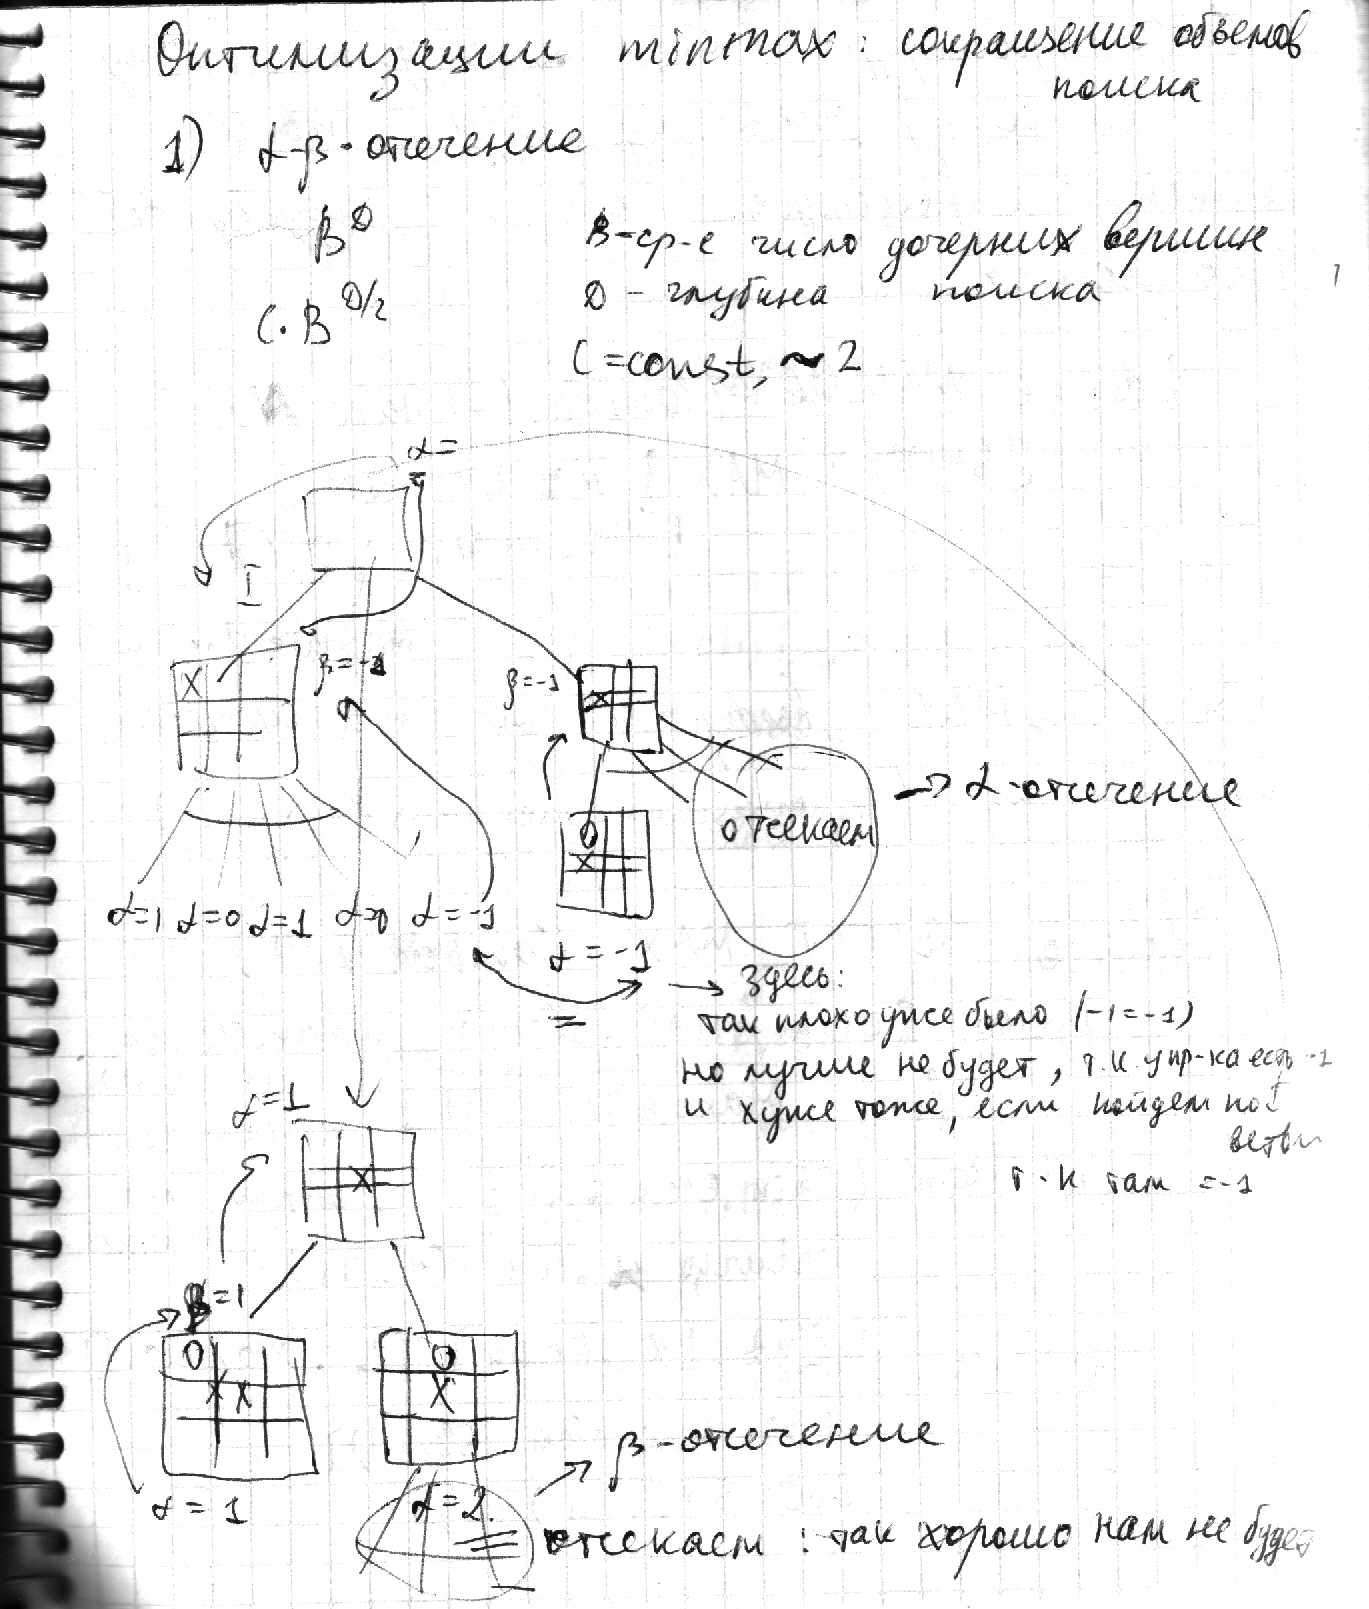 Оптимизации minmax: сокращение объемов
поиска
1) α-β-отсечение
B^D
B-ср-е число дочерних вершин
D - глубина поиска
C·B^D/2
C=const, ~2
α=
I
β=-1
β=-1
X
X
отсекаем
→ α-отсечение
O
X
α=1 α=0 α=1 α=0 α=-1
α=-1
=
→ Здесь:
так плохо уже было (-1=-1)
но лучше не будет, т.к. у пр-ка есть -1
и хуже тоже, если пойдем по I
ветви
т.к там =-1
α=1
X
β=1
O
X X
O
X
α=1
α=2
→ β-отсечение
отсекаем: так хорошо нам не будет